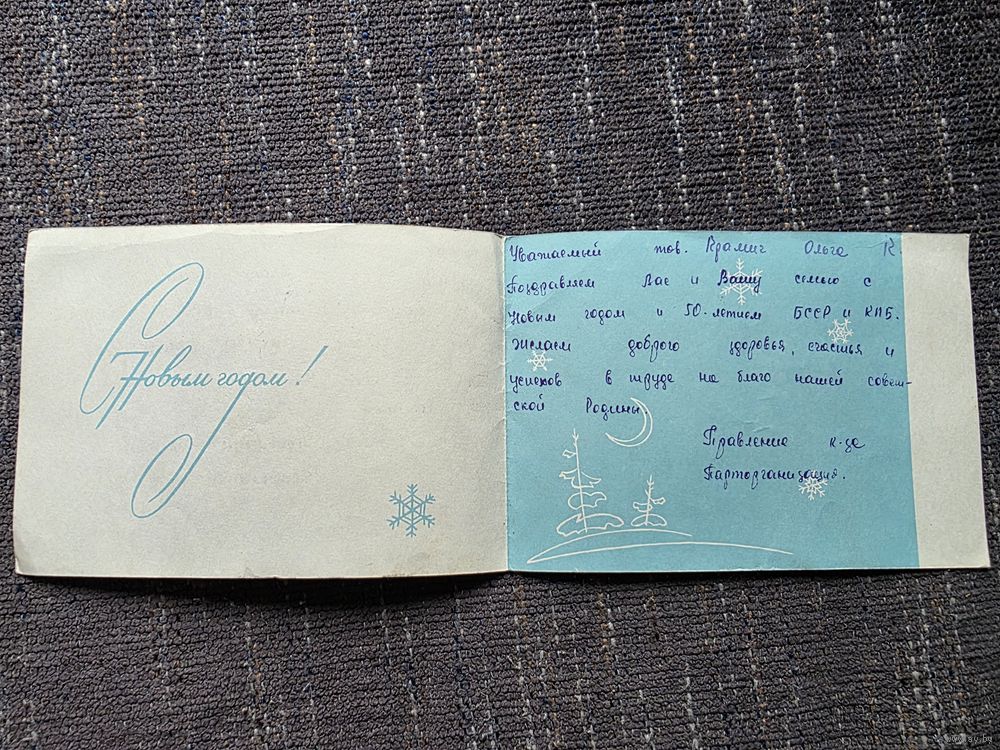 С Новым годом!
Уважаемый тов. Крамич Ольга К.
Поздравляем Вас и Вашу семью с
Новым годом и 50-летием БССР и КПБ.
Желаем доброго здоровья, счастья и
успехов в труде на благо нашей совет-
ской Родины.
Правление к-за
Парторганизация.